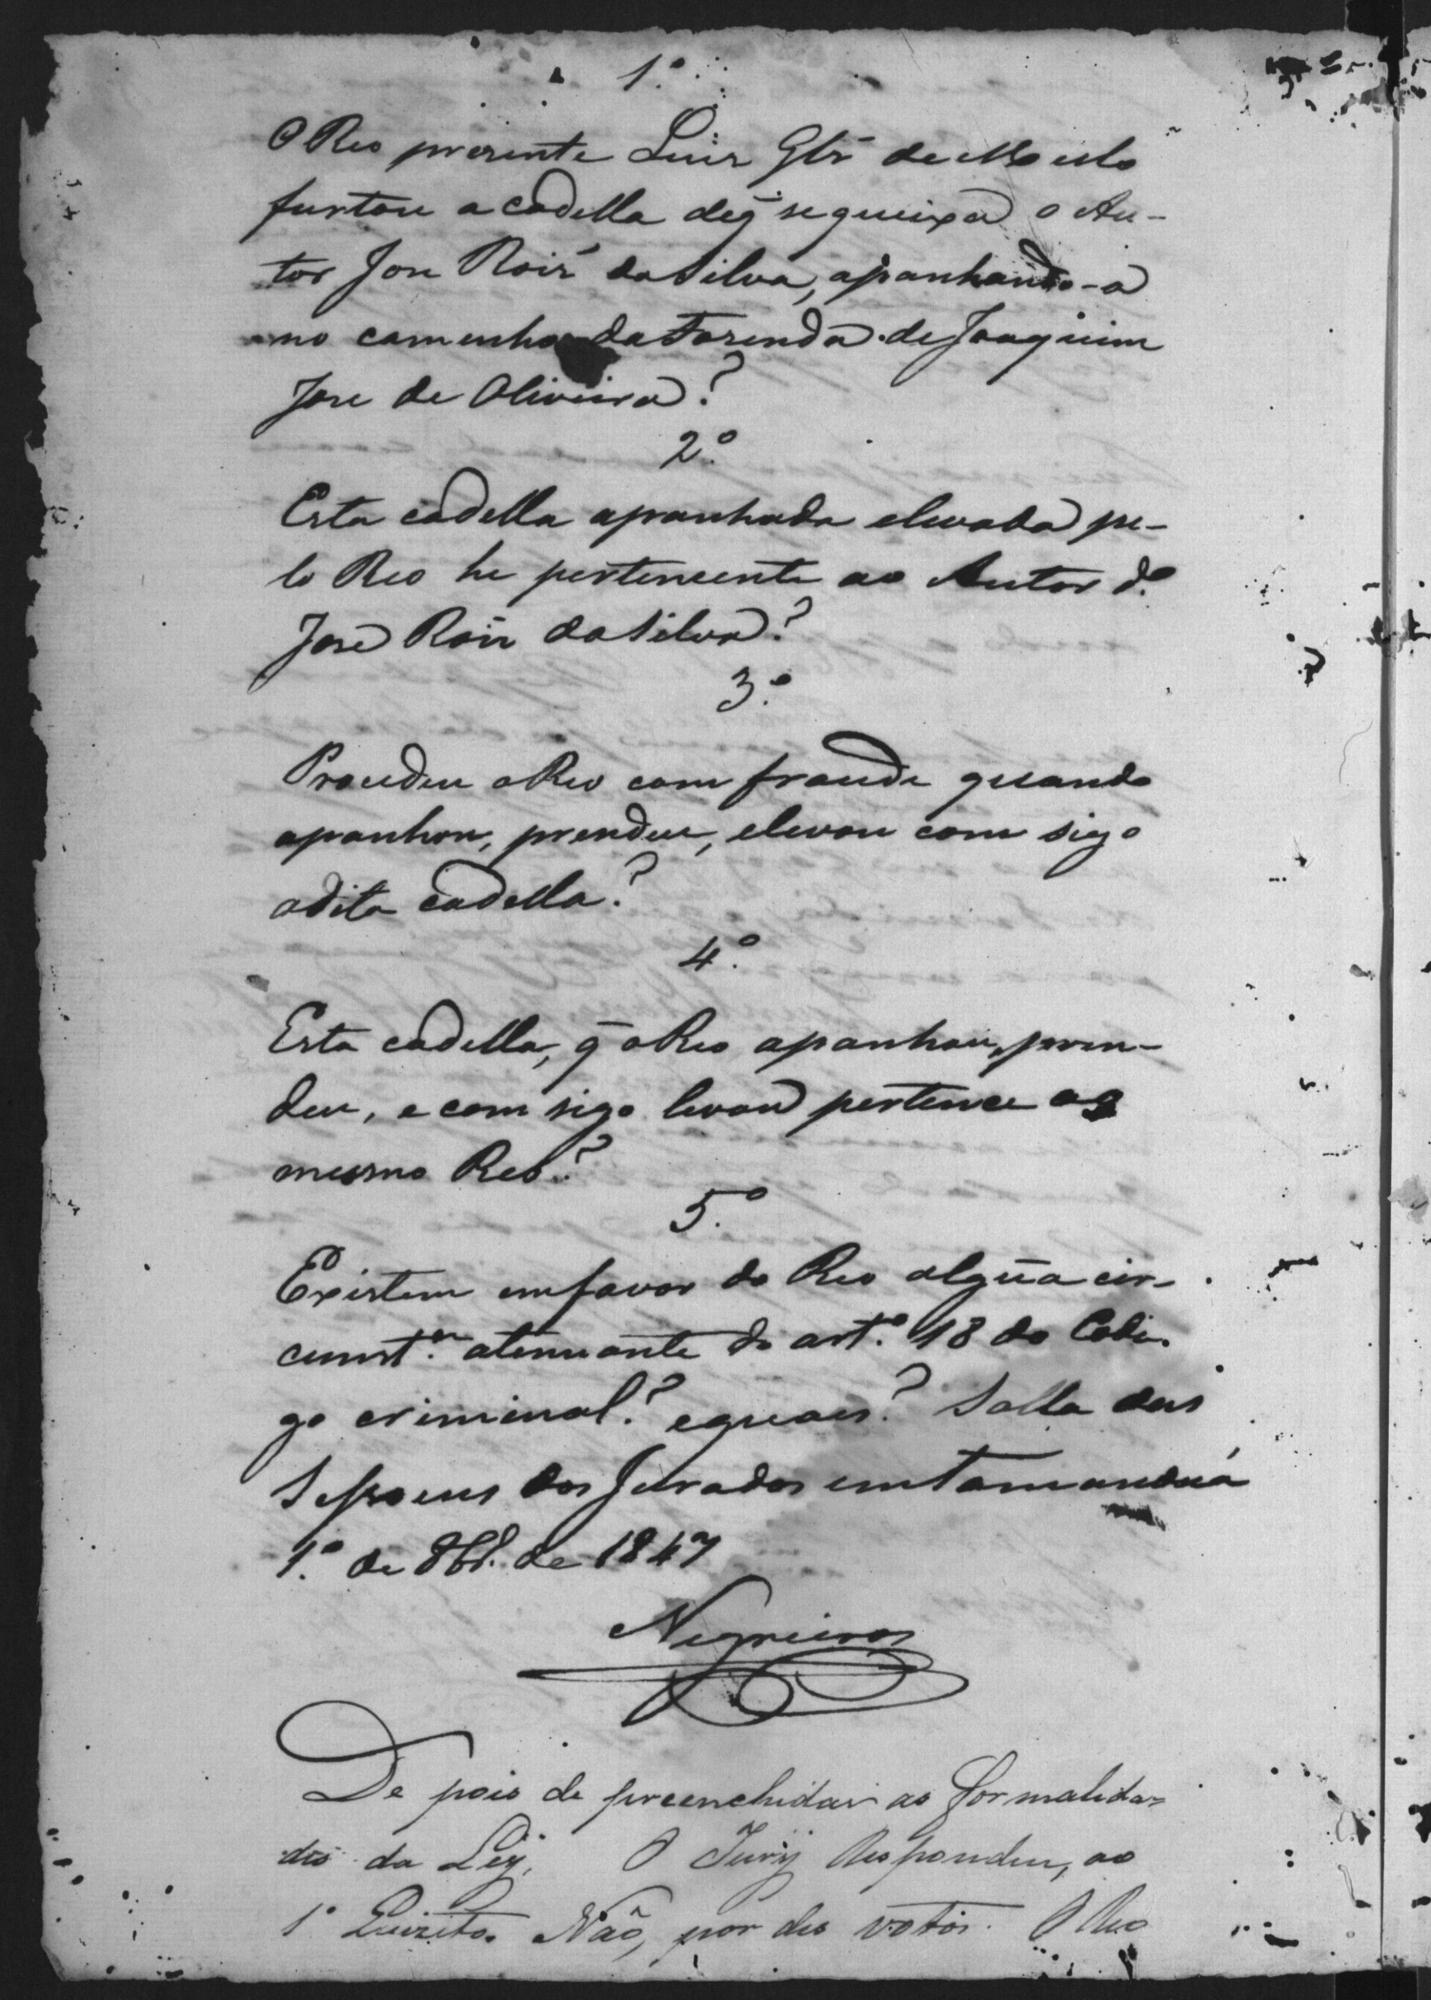 1.º
O Reo prezente Luis Glz' de Mello
furtou a cadella de q̃ se queixa o Au-
tor Jose Roiz' da Silva, apanhando-a
no caminho da Fazenda de Joaquim
Jose de Oliveira?
2.º
Esta cadella apanhada elevada pe-
lo Reo he pertencente ao Autor d.º
José Roiz da Silva?
3.º
Procedeu o Reo com fraude quando
apanhou, prendeu, e levou com sigo
a dita cadella?
4.º
Esta cadella, q̃ o Reo apanhou, pren-
deu, e com sigo levou pertence ao
mesmo Reo?
5.º
Existem em favor do Reo algũa cir-
cunst.ª atenuante do art.º 18 do Codi-
go criminal? e quaes? Salla das
Sessoens dos Jurados em Tamanduá
1.º de 8br.º de 1847
Negreiros
De pois de preenchidas as formalida-
des da Ley, O Jury Respondeu, ao
1º Quizito. Não, por des votos. O Reo